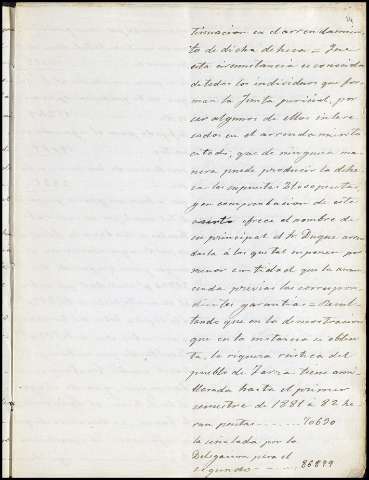 terminacion en el arrendamien-
to de dicha dehesa = Que
esta circunstancia es conocida
de todos los individuos que for-
man la Junta pericial, por
ser algunos de ellos intere-
sados en el arrendamiento
citado, que de ninguna ma-
nera puede producir la dehe-
sa las supuestas pesetas,
y en comprobacion de este
aserto ofrece el nombre de
su principal el Sr Duque arren-
darla á los que tal suponen por
menor cantidad que la anun-
ciada previas las correspon-
dientes garantias = Resul-
tando que en la demostracion
que en la instancia se
ta, la riqueza rústica del
pueblo de Zarza tiene ami-
llarada hasta el primer
semestre de 1881 á 82 
pesetas 70630
la señalada por la
Delegacion para el
segundo 86899